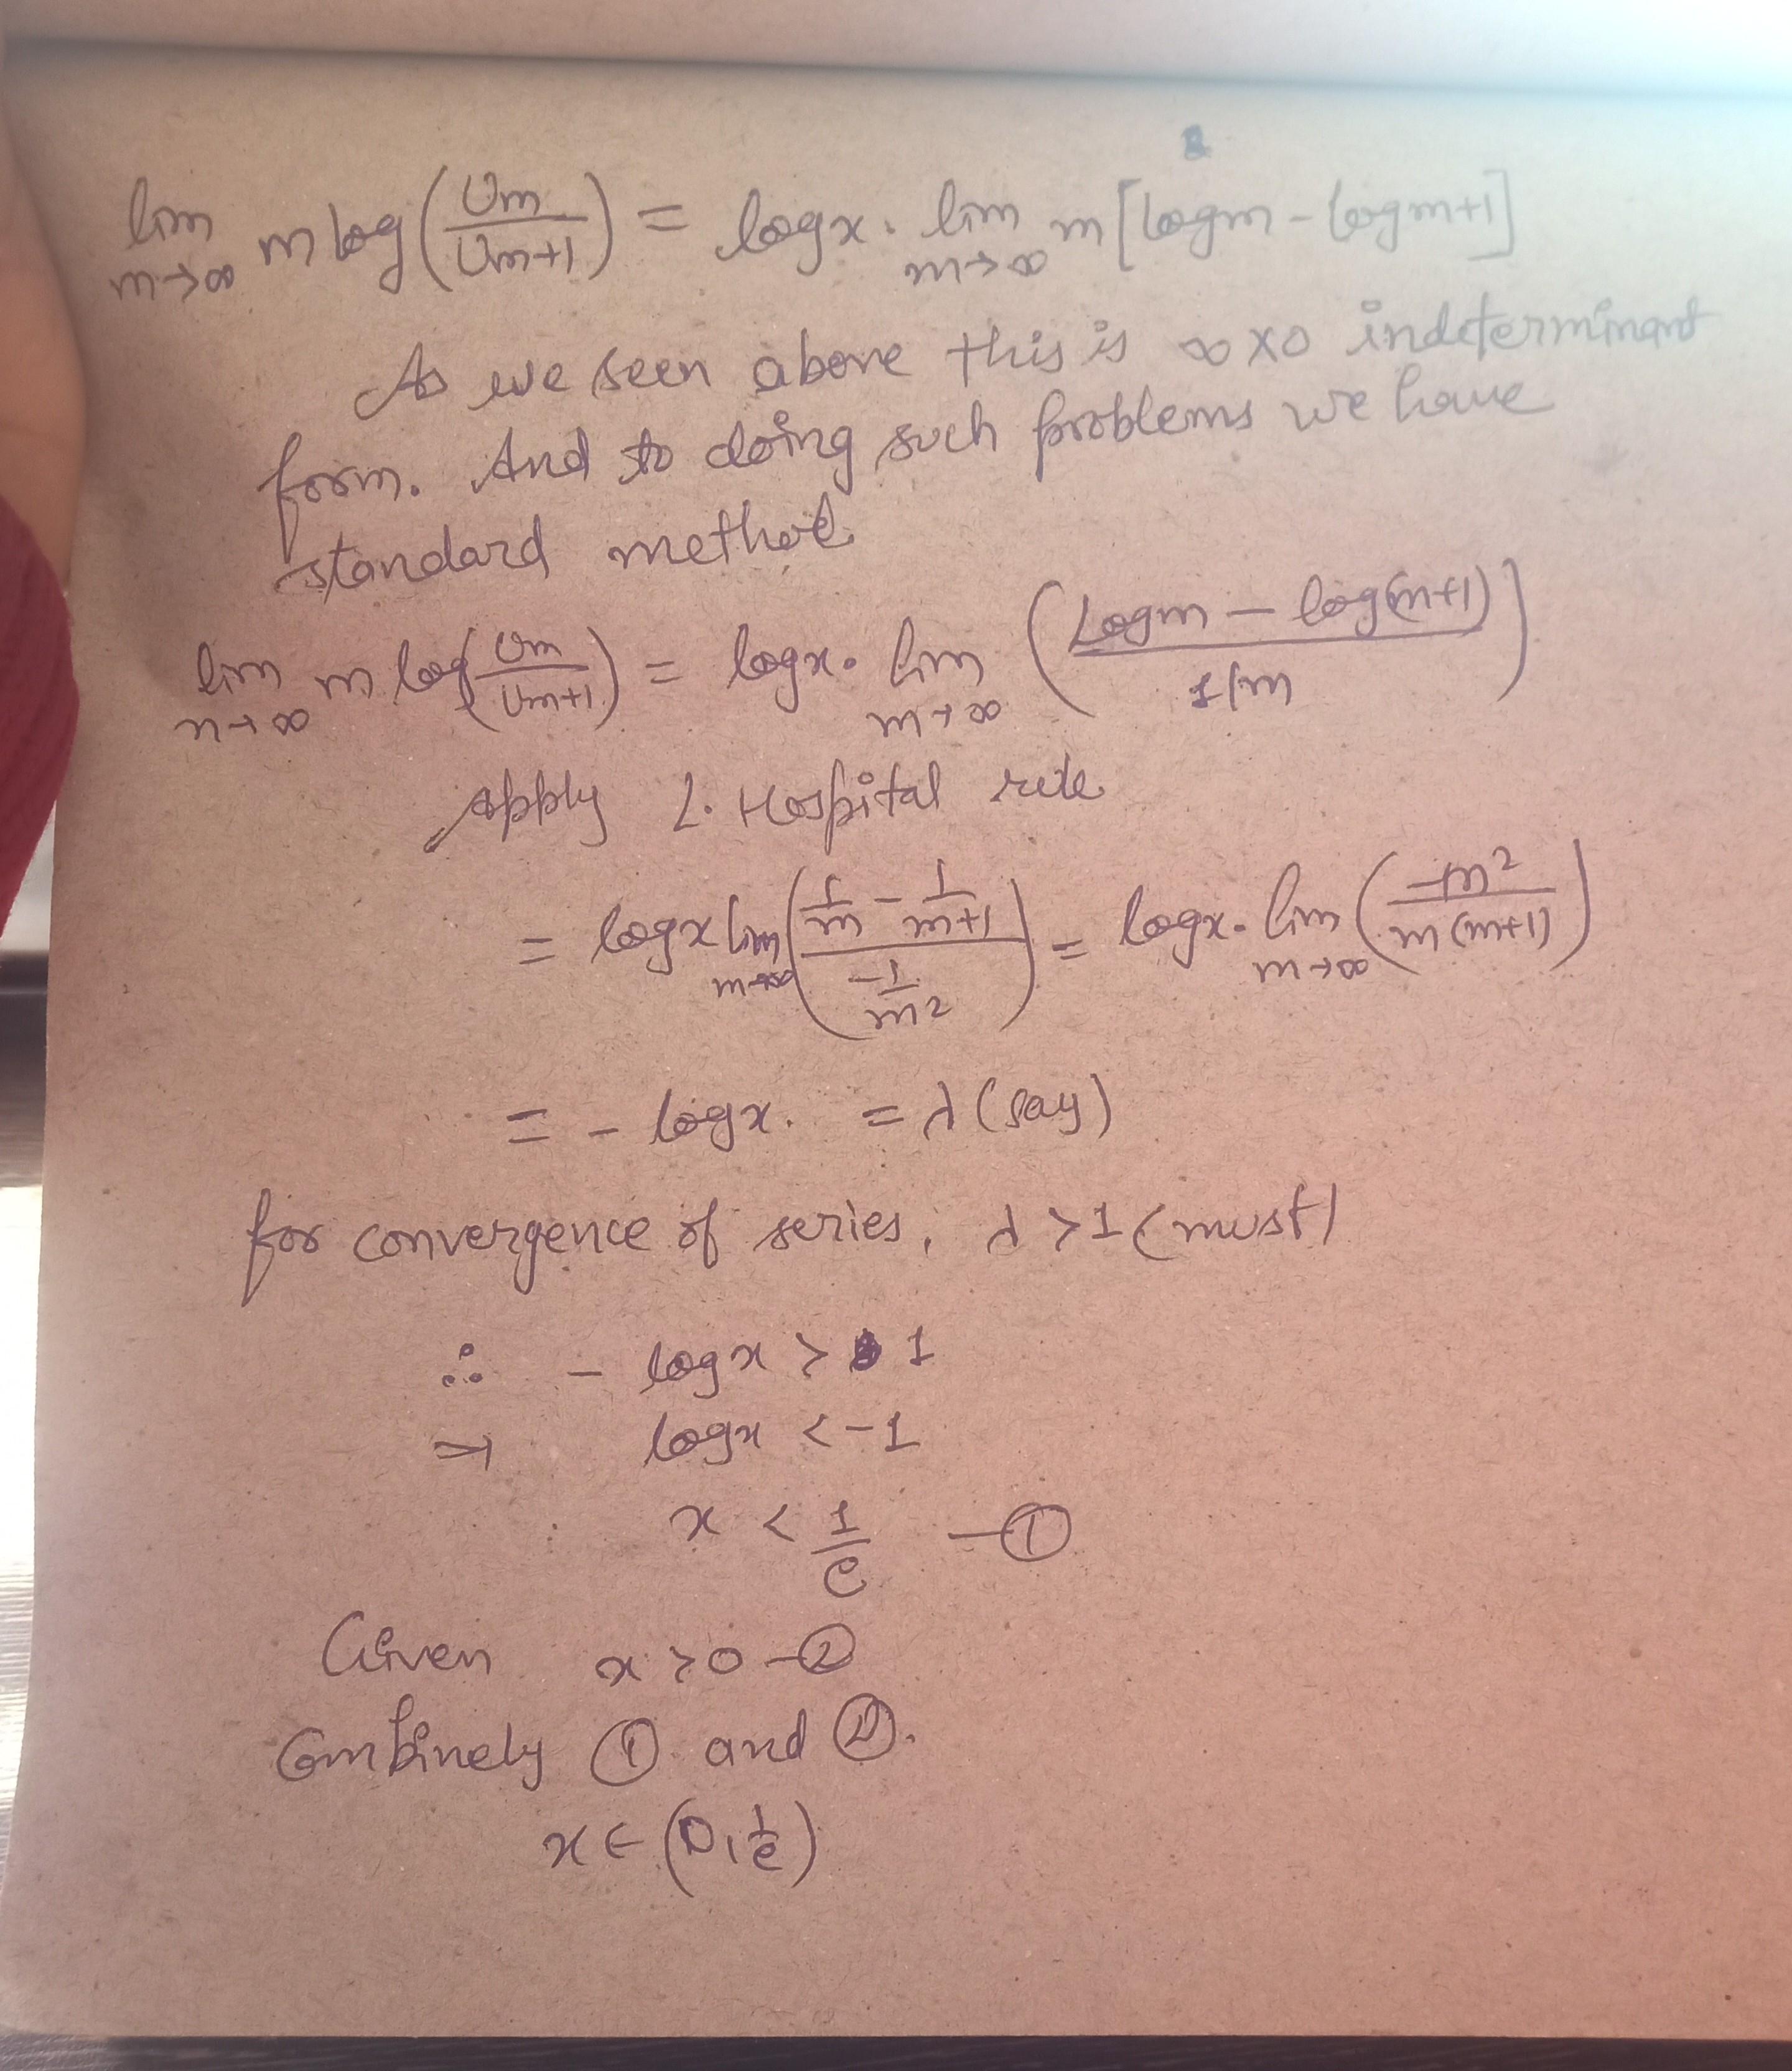 lim m→∞ m log(Um/Um+1) = logx. lim m→∞ m[logm - logm+1]
As we seen above this is ∞×0 indeterminant
form. And to doing such problems we have
standard method
lim n→∞ m log(Um/Um+1) = logx. lim m→∞ (Logm - log(m+1) / 1/m)
Apply L. Hospital rule
= logx lim m→∞ ((1/m - 1/m+1) / (-1/m²)) = logx. lim m→∞ (-m²/m(m+1))
= - logx. = λ (say)
for convergence of series, λ > 1 (must)
∴ - logx > 1
⇒ logx < -1
x < 1/e —①
Given x > 0 —②
Combinely ① and ②.
x ∈ (0, 1/e)